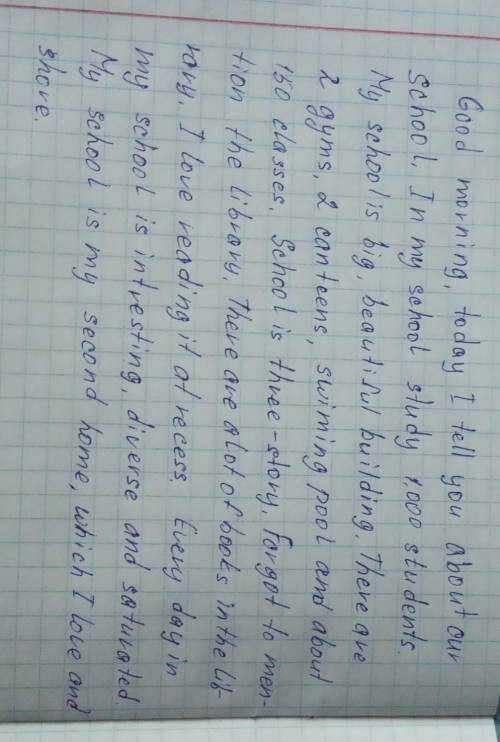 Good morning, today I tell you about our
School. In my school study 1,000 students.
My school is big, beautiful building. There are
2 gyms, 2 canteens, swiming pool and about
150 classes. School is three-story. Forgot to men-
tion the library. There are alot of books in the lib-
rary. I love reading it at recess. Every day in
my school is intresting, diverse and saturated.
My school is my second home, which I love and
shore.